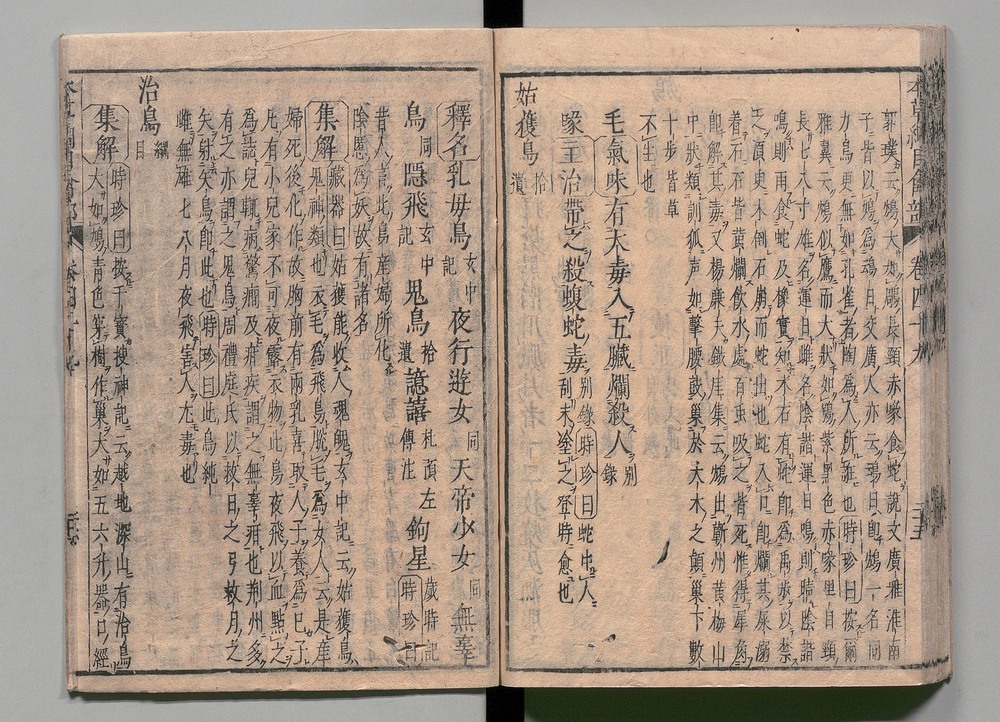 本草綱目禽部 卷四十九
郭璞云鴆大如鵰長頸赤喙食蛇說文廣雅淮南
子皆以鴆為運日交廣人亦云鴆日即鴆一名同
力鳥更無如孔雀者陶為人所誑也時珍曰按爾
雅翼云鴆似鷹而大狀如鴞紫黑色赤喙黑目頸
長七八寸雄名運日雌名陰諧運日鳴則晴陰諧
鳴則雨食蛇及橡實知木石有蛇即為禹步以禁
之須臾木倒石崩而蛇出也蛇入口即爛其屎溺
着石石皆黃爛飲水處百虫吸之皆死惟得犀角
即解其毒又楊廉夫鐵崖集云鴆出蘄州黃梅山
中狀類訓狐声如擊腰鼓巢於大木之顛巢下數
十步皆草
不生也
毛氣味有大毒入五臟爛殺人別錄
喙主治帶之殺蝮蛇毒別錄時珍曰蛇中人
刮末塗之登時愈也
姑獲鳥拾遺
釋名乳母鳥玄中記夜行遊女同天帝少女同無辜
鳥同隱飛玄中記鬼鳥拾遺譩譆杜預左傳注鉤星歲時記時珍曰
昔人言此鳥產婦所化
陰慝為妖故有諸名
集解藏器曰姑獲能收人魂魄玄中記云姑獲鳥
鬼神類也衣毛為飛鳥脫毛為女人云是產
婦死後化作故胸前有兩乳喜取人子養為己子
凡有小兒家不可夜露衣物此鳥夜飛以血點之
為誌兒輒病驚癇及疳疾謂之無辜疳也荆州多
有之亦謂之鬼鳥周禮庭氏以救日之弓救月之
矢射夭鳥即此也時珍曰此鳥純
雌無雄七八月夜飛害人尤毒也
治鳥綱目
集解時珍曰按干寶搜神記云越地深山有治鳥
大如鳩青色穿樹作巢大如五六升器口徑